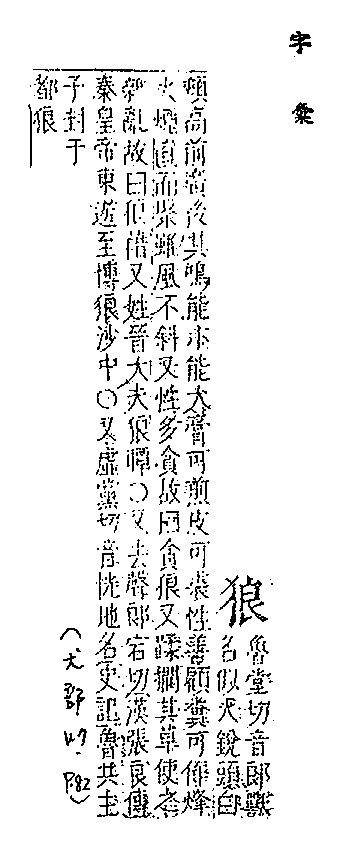 字彙
狼
魯堂切音郎獸
名似犬銳頭白
頰高前廣後其鳴能小能大膏可煎皮可裘性善顧糞可作烽
火煙直而聚雖風不斜又性多貪故曰貪狼又蹂躪其草使之
雜亂故曰狼藉又姓晉大夫狼瞫〇又去聲郎宕切漢張良傳
秦皇帝東遊至博狼沙中〇又虛黨切音恍地名史記魯共王
子封于
都狼
(犬部 P.82)